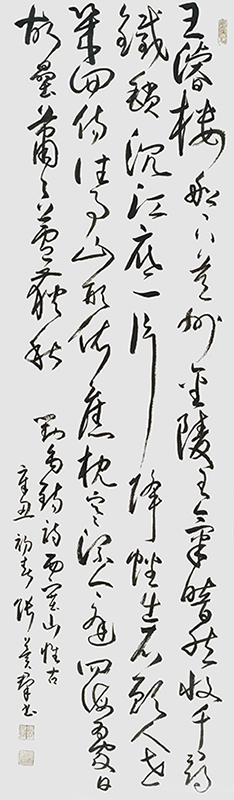 王濬樓船下益州金陵王氣黯然收千尋
鐵鎖沉江底一片降幡出石頭人世
幾回傷往事山形依舊枕寒流今逢四海為家日
故壘蕭蕭蘆荻秋
劉禹錫詩西塞山懷古
辛丑初春張書